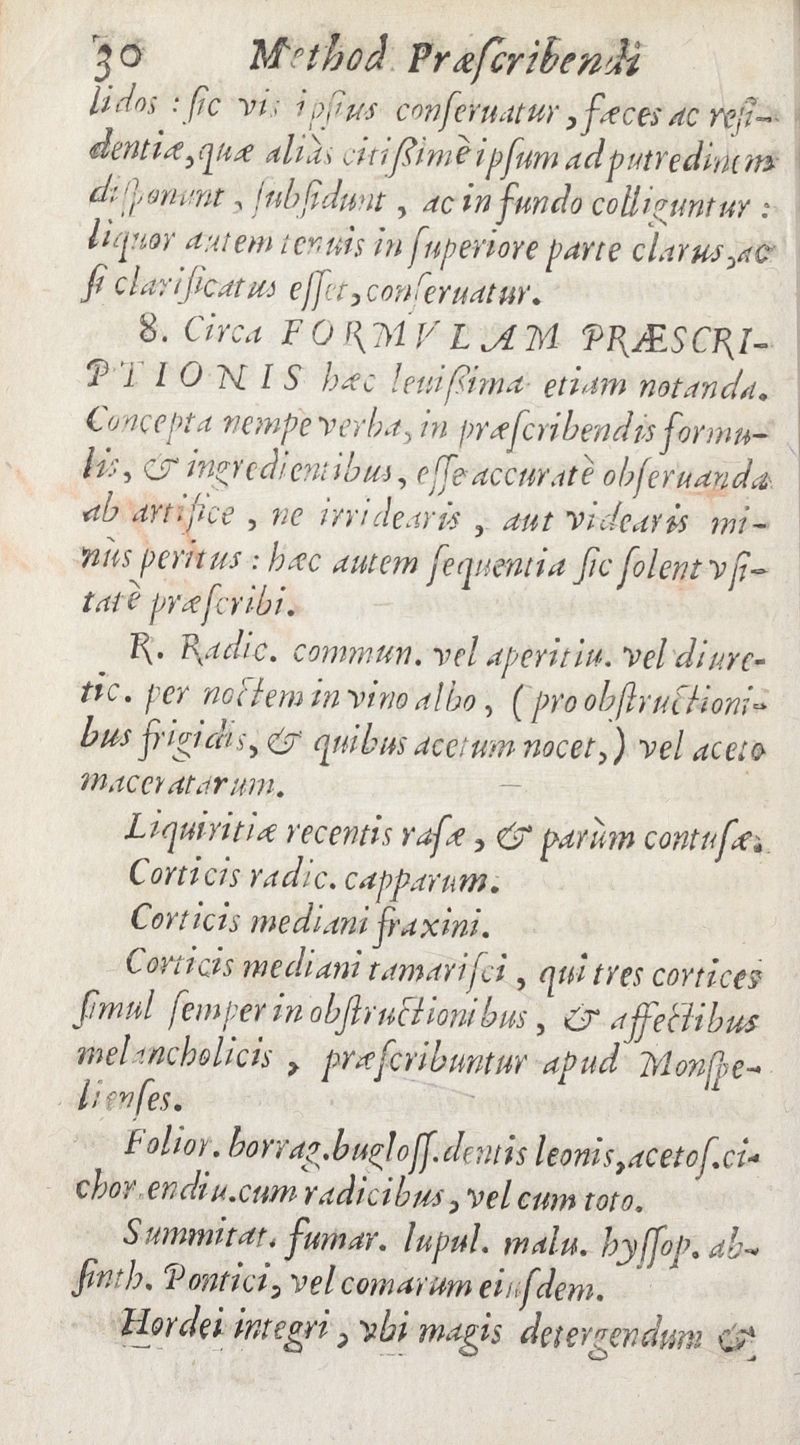 30 Method. Præſcribendi
lidos : ſic vis ipſius conſeruatur, fæces ac reſi-
dentiæ, quæ aliàs citiſſimè ipſum ad putredinem
diſponunt, ſubſidunt, ac in fundo colliguntur :
liquor autem tenuis in ſuperiore parte clarus, ac
ſi clarificatus eſſet, conſeruatur.
8. Circa FORMVLAM PRÆSCRI-
PTIONIS hæc leuiſſima etiam notanda.
Concepta nempe verba, in præſcribendis formu-
lis, & ingredientibus, eſſe accuratè obſeruanda
ab artifice, ne irridearis, aut videaris mi-
nùs peritus : hæc autem ſequentia ſic ſolent vſi-
tatè præſcribi.
R. Radic. commun. vel aperitiu. vel diure-
tic. per noctem in vino albo, (pro obſtructioni-
bus frigidis, & quibus acetum nocet,) vel aceto
maceratarum.
Liquiritiæ recentis raſæ, & parùm contuſæ.
Corticis radic. capparum.
Corticis mediani fraxini.
Corticis mediani tamariſci, qui tres cortices
ſimul ſemper in obſtructionibus, & affectibus
melancholicis, præſcribuntur apud Monſpe-
lienſes.
Folior. borrag. bugloſſ. dentis leonis, acetoſ. ci-
chor. endiu. cum radicibus, vel cum toto.
Summitat. fumar. lupul. malu. hyſſop. ab-
ſinth. Pontici, vel comarum eiuſdem.
Hordei integri, vbi magis detergendum &